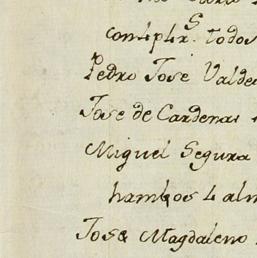 todos
Pedro Jose Valde
Jose de Cardenas
Miguel Segura
hambos 4 alm
Jose Magdaleno